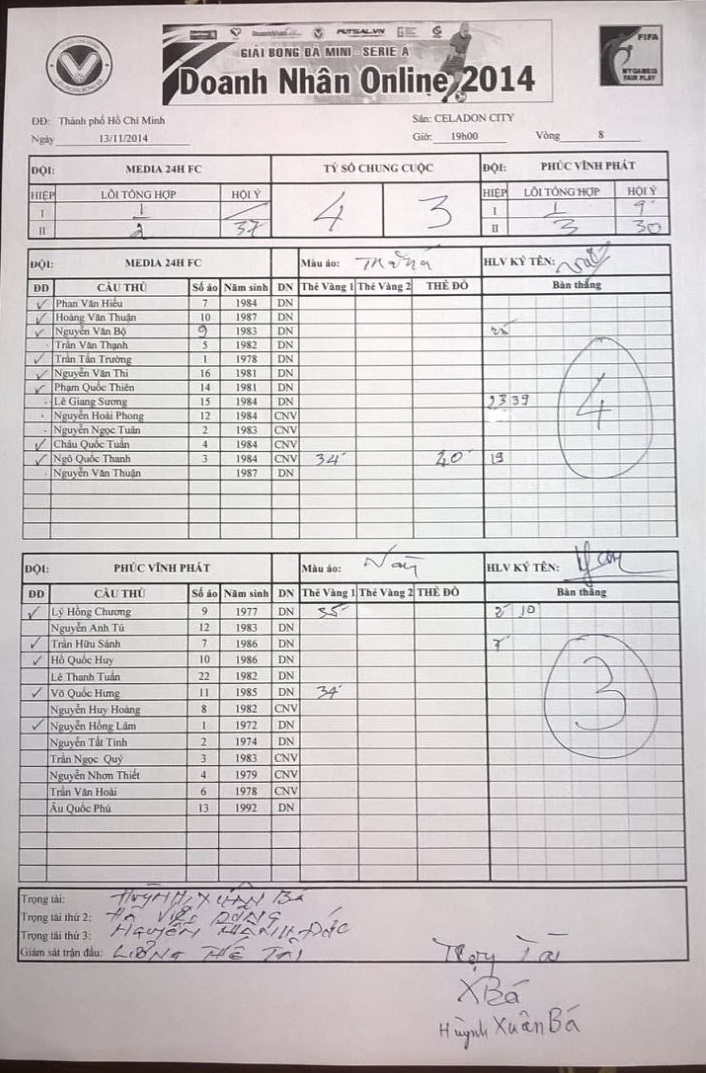 FUTSAL.VN
GIẢI BÓNG ĐÁ MINI - SERIE A
Doanh Nhân Online 2014
FIFA
MY GAME IS
FAIR PLAY
ĐĐ: Thành phố Hồ Chí Minh Sân: CELADON CITY
Ngày 13/11/2014 Giờ: 19h00 Vòng 8
ĐỘI: MEDIA 24H FC TỶ SỐ CHUNG CUỘC ĐỘI: PHÚC VĨNH PHÁT
HIỆP LỖI TỔNG HỢP HỘI Ý 4 3 HIỆP LỖI TỔNG HỢP HỘI Ý
I 1 I 1 9'
II 2 37 II 3 30
ĐỘI: MEDIA 24H FC Màu áo: Trắng HLV KÝ TÊN:
ĐD CẦU THỦ Số áo Năm sinh DN Thẻ Vàng 1 Thẻ Vàng 2 THẺ ĐỎ Bàn thắng
Phan Văn Hiếu 7 1984 DN
Hoàng Văn Thuận 10 1987 DN
Nguyễn Văn Bộ 9 1983 DN
Trần Văn Thạnh 5 1982 DN
Trần Tấn Trường 1 1978 DN
Nguyễn Văn Thi 16 1981 DN
Phạm Quốc Thiên 14 1981 DN
Lê Giang Sương 15 1984 DN 23 39
Nguyễn Hoài Phong 12 1984 CNV
Nguyễn Ngọc Tuân 2 1983 CNV
Châu Quốc Tuấn 4 1984 CNV
Ngô Quốc Thanh 3 1984 CNV 34' 40' 19
Nguyễn Văn Thuận 1987 DN
4
ĐỘI: PHÚC VĨNH PHÁT Màu áo: HLV KÝ TÊN:
ĐD CẦU THỦ Số áo Năm sinh DN Thẻ Vàng 1 Thẻ Vàng 2 THẺ ĐỎ Bàn thắng
Lý Hồng Chương 9 1977 DN 35' 2' 10
Nguyễn Anh Tú 12 1983 DN
Trần Hữu Sánh 7 1986 DN 7
Hồ Quốc Huy 10 1986 DN
Lê Thanh Tuấn 22 1982 DN
Võ Quốc Hưng 11 1985 DN 34'
Nguyễn Huy Hoàng 8 1982 CNV
Nguyễn Hồng Lâm 1 1972 DN
Nguyễn Tất Tinh 2 1974 DN
Trần Ngọc Quý 3 1983 CNV
Nguyễn Nhơn Thiết 4 1979 CNV
Trần Văn Hoài 6 1978 CNV
Âu Quốc Phú 13 1992 DN
3
Trọng tài: HUỲNH XUÂN BÁ
Trọng tài thứ 2: HÀ VIỆT DŨNG
Trọng tài thứ 3: NGUYỄN MẠNH ĐẮC
Giám sát trận đấu: LƯƠNG THẾ TÀI
Trọng Tài
XBá
Huỳnh Xuân Bá